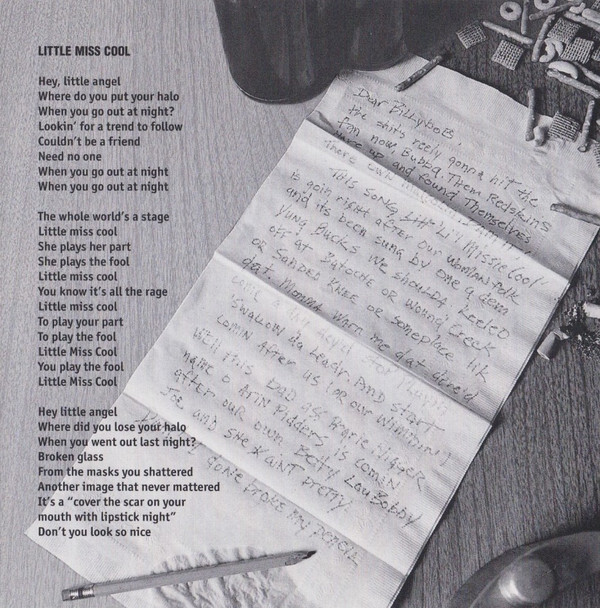 LITTLE MISS COOL
Hey, little angel
Where do you put your halo
When you go out at night?
Lookin' for a trend to follow
Couldn't be a friend
Need no one
When you go out at night
When you go out at night
The whole world's a stage
Little miss cool
She plays her part
She plays the fool
Little miss cool
You know it's all the rage
Little miss cool
To play your part
To play the fool
Little Miss Cool
You play the fool
Little Miss Cool
Hey little angel
Where did you lose your halo
When you went out last night?
Broken glass
From the masks you shattered
Another image that never mattered
It's a "cover the scar on your
mouth with lipstick night"
Don't you look so nice
Dear Billybob,
the shit's reely gonna hit the
fan now, Bubba. Them Redskins
up and found Themselves
There own
This song, Li'l Missie Cool
is goin right after our Woman folk
and its been sung by one a dem
Yung Bucks we shoulda
off at Batoche or Wound Creek
or Sanded Knee or someplace lik
dat. Momma Warn me dat dere'd
come a day
Swallow da Leadr. And start
comin after us for our
Well this bad ass Prarie Nigger
name o Pudders is comen
after our own Betty Lou Bobby
Joe and she kaint pretty
done broke my pencil